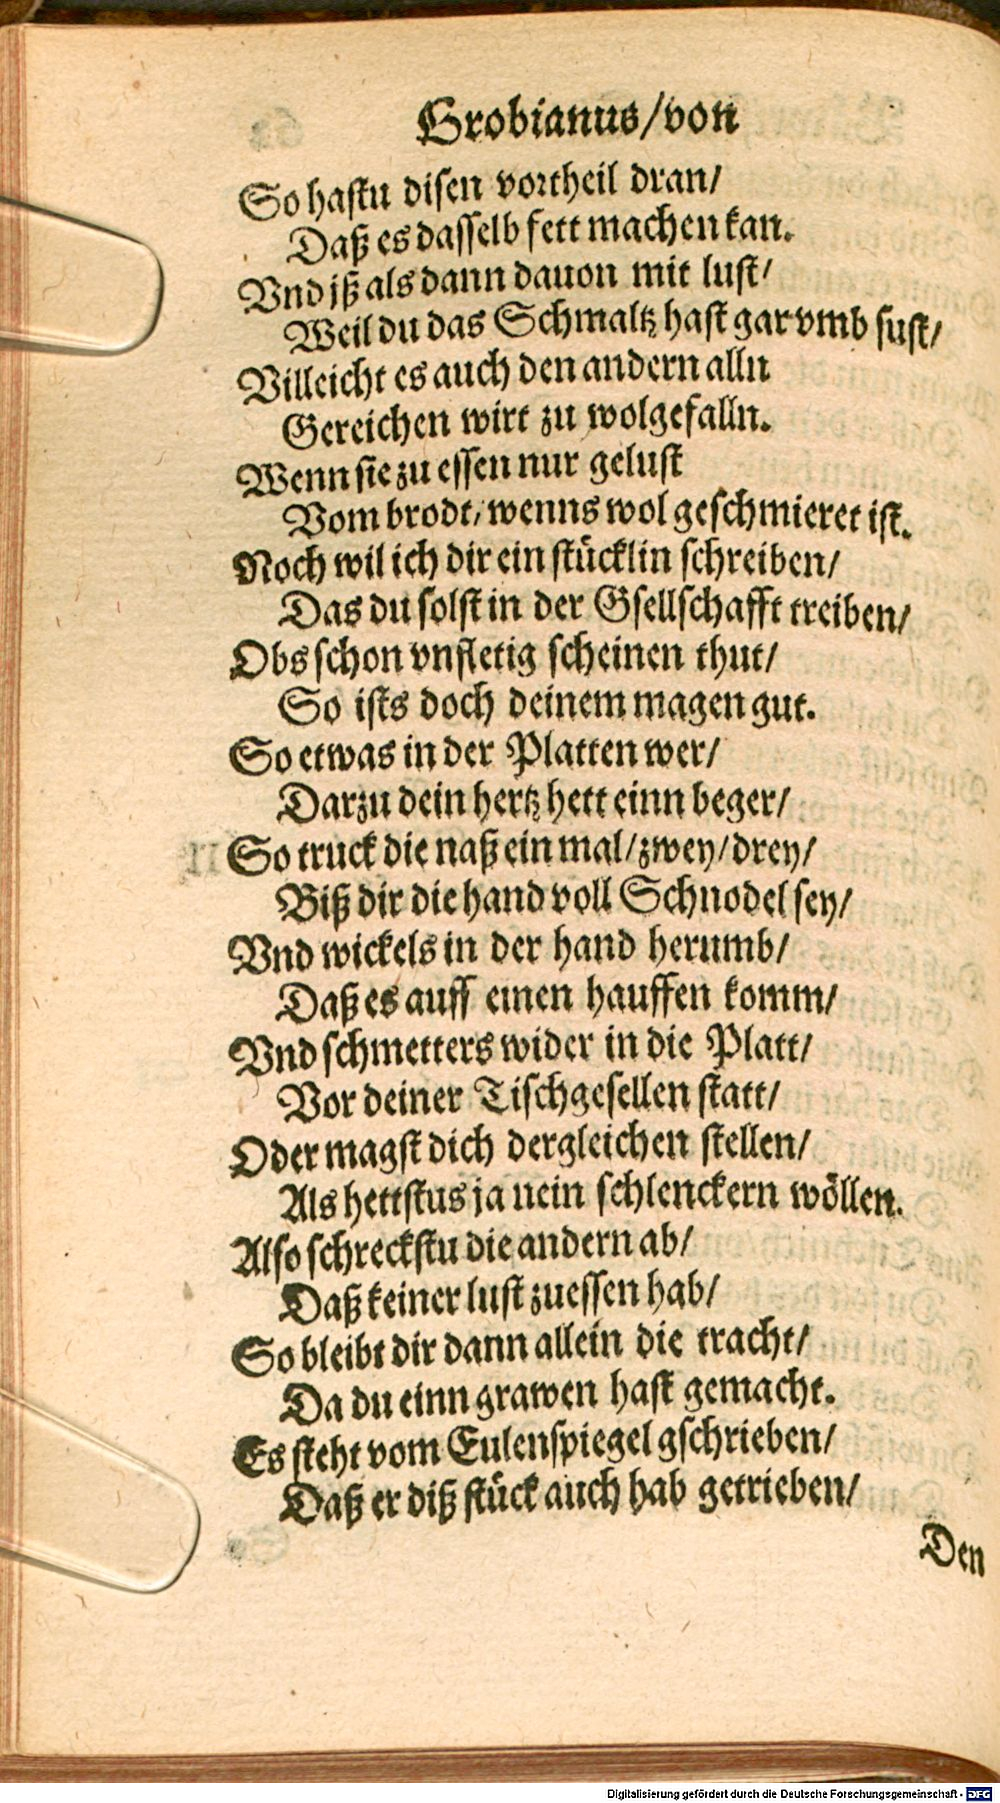 Grobianus/von
So hastu disen vortheil dran/
Daß es dasselb fett machen kan.
Vnd jß als dann dauon mit lust/
Weil du das Schmaltz hast gar vmb sust/
Villeicht es auch den andern alln
Gereichen wirt zu wolgefalln.
Wenn sie zu essen nur gelust
Vom brodt/ wenns wol geschmieret ist.
Noch wil ich dir ein stücklin schreiben/
Das du solst in der Gsellschafft treiben/
Obs schon vnfletig scheinen thut/
So ists doch deinem magen gut.
So etwas in der Platten wer/
Darzu dein hertz hett einn beger/
So truck die naß ein mal/zwey/drey/
Biß dir die hand voll Schnodel sey/
Vnd wickels in der hand herumb/
Daß es auff einen hauffen komm/
Vnd schmetters wider in die Platt/
Vor deiner Tischgesellen statt/
Oder magst dich dergleichen stellen/
Als hettstus ja nein schlenckern wöllen.
Also schreckstu die andern ab/
Daß keiner lust zuessen hab/
So bleibt dir dann allein die tracht/
Da du einn grawen hast gemacht.
Es steht vom Eulenspiegel gschrieben/
Daß er diß stück auch hab getrieben/
Den
Digitalisierung gefördert durch die Deutsche Forschungsgemeinschaft - DFG